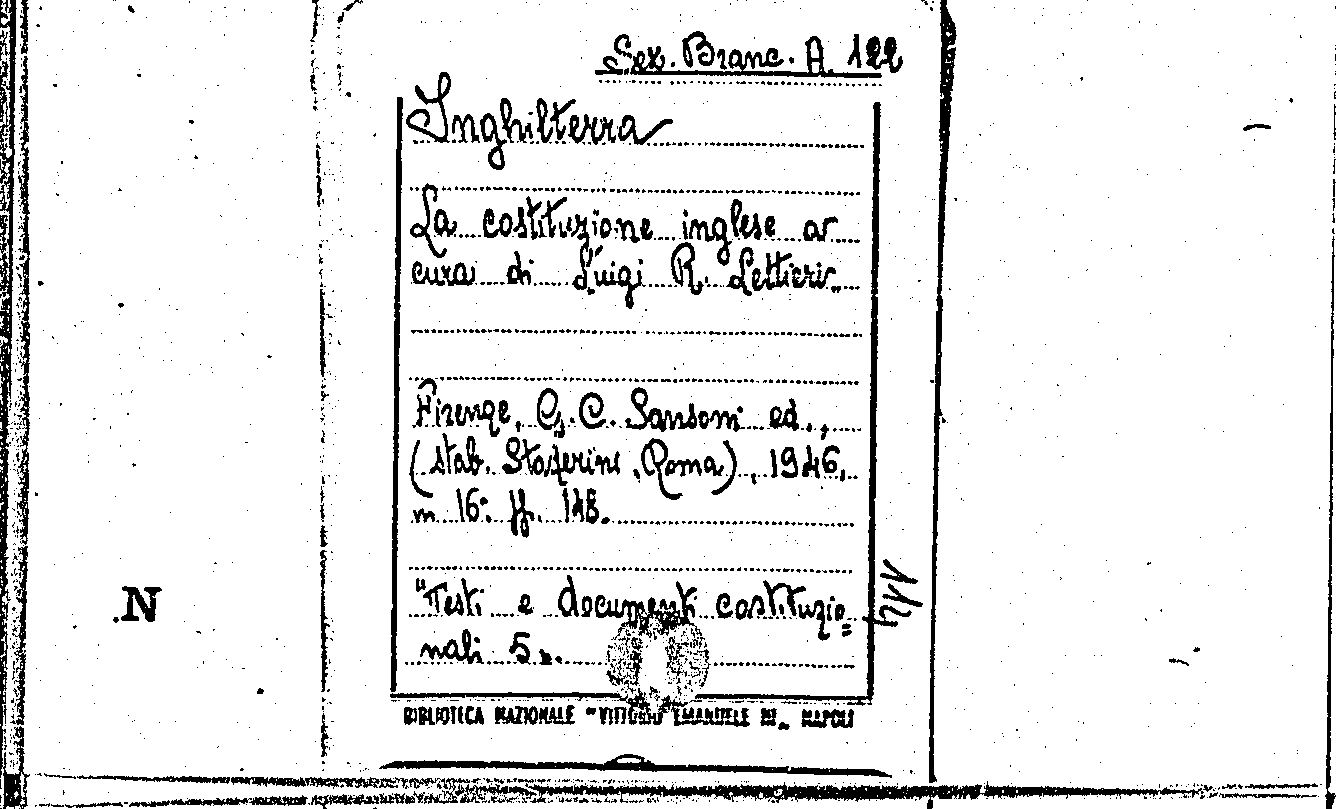 Sez. Branc. A. 122
Inghilterra
La costituzione inglese a
cura di Luigi R. Lettieri.
Firenze, G. C. Sansoni ed.,
(stab. Staderini, Roma), 1946,
in 16°. ff. 148.
"Testi e documenti costituzio=
nali 5".
114
.N
BIBLIOTECA NAZIONALE "VITTORIO EMANUELE III" NAPOLI